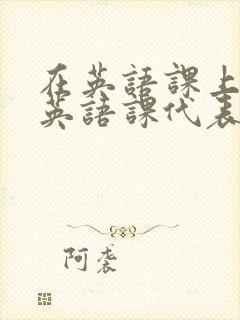 在英語課上
英語課代表
阿袭